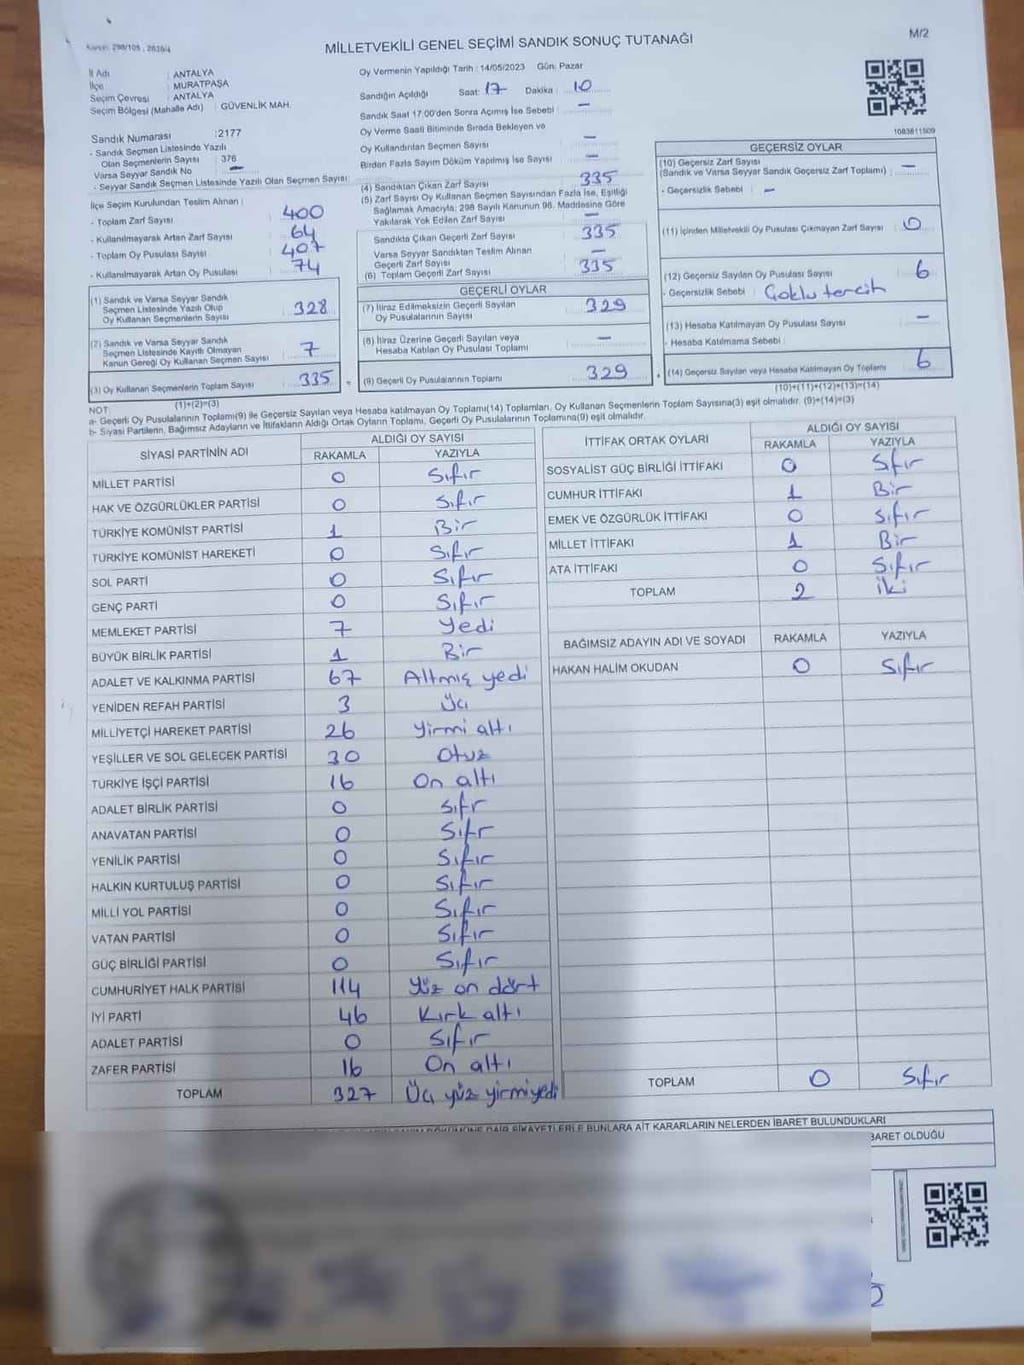 Kanun: 298/105, 2839/4
MİLLETVEKİLİ GENEL SEÇİMİ SANDIK SONUÇ TUTANAĞI
M/2
İl Adı : ANTALYA
İlçe : MURATPAŞA
Seçim Çevresi : ANTALYA
Seçim Bölgesi (Mahalle Adı) : GÜVENLİK MAH.
Sandık Numarası :2177
- Sandık Seçmen Listesinde Yazılı
Olan Seçmenlerin Sayısı : 376
Varsa Seyyar Sandık No –
- Seyyar Sandık Seçmen Listesinde Yazılı Olan Seçmen Sayısı:
İlçe Seçim Kurulundan Teslim Alınan :
- Toplam Zarf Sayısı 400
- Kullanılmayarak Artan Zarf Sayısı 64
- Toplam Oy Pusulası Sayısı 407
- Kullanılmayarak Artan Oy Pusulası 74
(1) Sandık ve Varsa Seyyar Sandık
Seçmen Listesinde Yazılı Olup
Oy Kullanan Seçmenlerin Sayısı 328
(2) Sandık ve Varsa Seyyar Sandık
Seçmen Listesinde Kayıtlı Olmayan
Kanun Gereği Oy Kullanan Seçmen Sayısı 7
(3) Oy Kullanan Seçmenlerin Toplam Sayısı 335
(1)+(2)=(3)
Oy Vermenin Yapıldığı Tarih : 14/05/2023 Gün: Pazar
Sandığın Açıldığı Saat: 17 Dakika : 10
Sandık Saat 17.00'den Sonra Açılmış İse Sebebi : –
Oy Verme Saati Bitiminde Sırada Bekleyen ve
Oy Kullandırılan Seçmen Sayısı –
Birden Fazla Sayım Döküm Yapılmış İse Sayısı –
(4) Sandıktan Çıkan Zarf Sayısı 335
(5) Zarf Sayısı Oy Kullanan Seçmen Sayısından Fazla İse, Eşitliği
Sağlamak Amacıyla; 298 Sayılı Kanunun 98. Maddesine Göre
Yakılarak Yok Edilen Zarf Sayısı –
Sandıkta Çıkan Geçerli Zarf Sayısı 335
Varsa Seyyar Sandıktan Teslim Alınan
Geçerli Zarf Sayısı –
(6) Toplam Geçerli Zarf Sayısı 335
GEÇERLİ OYLAR
(7) İtiraz Edilmeksizin Geçerli Sayılan
Oy Pusulalarının Sayısı 329
(8) İtiraz Üzerine Geçerli Sayılan veya
Hesaba Katılan Oy Pusulası Toplamı –
(9) Geçerli Oy Pusulalarının Toplamı 329
1083811509
GEÇERSİZ OYLAR
(10) Geçersiz Zarf Sayısı
(Sandık ve Varsa Seyyar Sandık Geçersiz Zarf Toplamı) : –
- Geçersizlik Sebebi : –
(11) İçinden Milletvekili Oy Pusulası Çıkmayan Zarf Sayısı 0
(12) Geçersiz Sayılan Oy Pusulası Sayısı 6
- Geçersizlik Sebebi : Çoklu tercih
(13) Hesaba Katılmayan Oy Pusulası Sayısı –
- Hesaba Katılmama Sebebi :
(14) Geçersiz Sayılan veya Hesaba Katılmayan Oy Toplamı 6
(10)+(11)+(12)+(13)=(14)
NOT:
a- Geçerli Oy Pusulalarının Toplamı(9) ile Geçersiz Sayılan veya Hesaba Katılmayan Oy Toplamı(14) Toplamları, Oy Kullanan Seçmenlerin Toplam Sayısına(3) eşit olmalıdır. (9)+(14)=(3)
b- Siyasi Partilerin, Bağımsız Adayların ve İttifakların Aldığı Ortak Oyların Toplamı, Geçerli Oy Pusulalarının Toplamına(9) eşit olmalıdır.
SİYASİ PARTİNİN ADI ALDIĞI OY SAYISI
RAKAMLA YAZIYLA
MİLLET PARTİSİ 0 Sıfır
HAK VE ÖZGÜRLÜKLER PARTİSİ 0 Sıfır
TÜRKİYE KOMÜNİST PARTİSİ 1 Bir
TÜRKİYE KOMÜNİST HAREKETİ 0 Sıfır
SOL PARTİ 0 Sıfır
GENÇ PARTİ 0 Sıfır
MEMLEKET PARTİSİ 7 Yedi
BÜYÜK BİRLİK PARTİSİ 1 Bir
ADALET VE KALKINMA PARTİSİ 67 Altmış yedi
YENİDEN REFAH PARTİSİ 3 Üç
MİLLİYETÇİ HAREKET PARTİSİ 26 Yirmi altı
YEŞİLLER VE SOL GELECEK PARTİSİ 30 Otuz
TÜRKİYE İŞÇİ PARTİSİ 16 On altı
ADALET BİRLİK PARTİSİ 0 Sıfr
ANAVATAN PARTİSİ 0 Sıfr
YENİLİK PARTİSİ 0 Sıfır
HALKIN KURTULUŞ PARTİSİ 0 Sıfır
MİLLİ YOL PARTİSİ 0 Sıfır
VATAN PARTİSİ 0 Sıfır
GÜÇ BİRLİĞİ PARTİSİ 0 Sıfır
CUMHURİYET HALK PARTİSİ 114 Yüz on dört
İYİ PARTİ 46 Kırk altı
ADALET PARTİSİ 0 Sıfır
ZAFER PARTİSİ 16 On altı
TOPLAM 327 Üç yüz yirmiyedi
İTTİFAK ORTAK OYLARI ALDIĞI OY SAYISI
RAKAMLA YAZIYLA
SOSYALİST GÜÇ BİRLİĞİ İTTİFAKI 0 Sıfır
CUMHUR İTTİFAKI 1 Bir
EMEK VE ÖZGÜRLÜK İTTİFAKI 0 Sıfır
MİLLET İTTİFAKI 1 Bir
ATA İTTİFAKI 0 Sıfır
TOPLAM 2 İki
BAĞIMSIZ ADAYIN ADI VE SOYADI RAKAMLA YAZIYLA
HAKAN HALİM OKUDAN 0 Sıfır
TOPLAM 0 Sıfır
DÖKÜMÜNE DAİR ŞİKAYETLERLE BUNLARA AİT KARARLARIN NELERDEN İBARET BULUNDUKLARI
BARET OLDUĞU